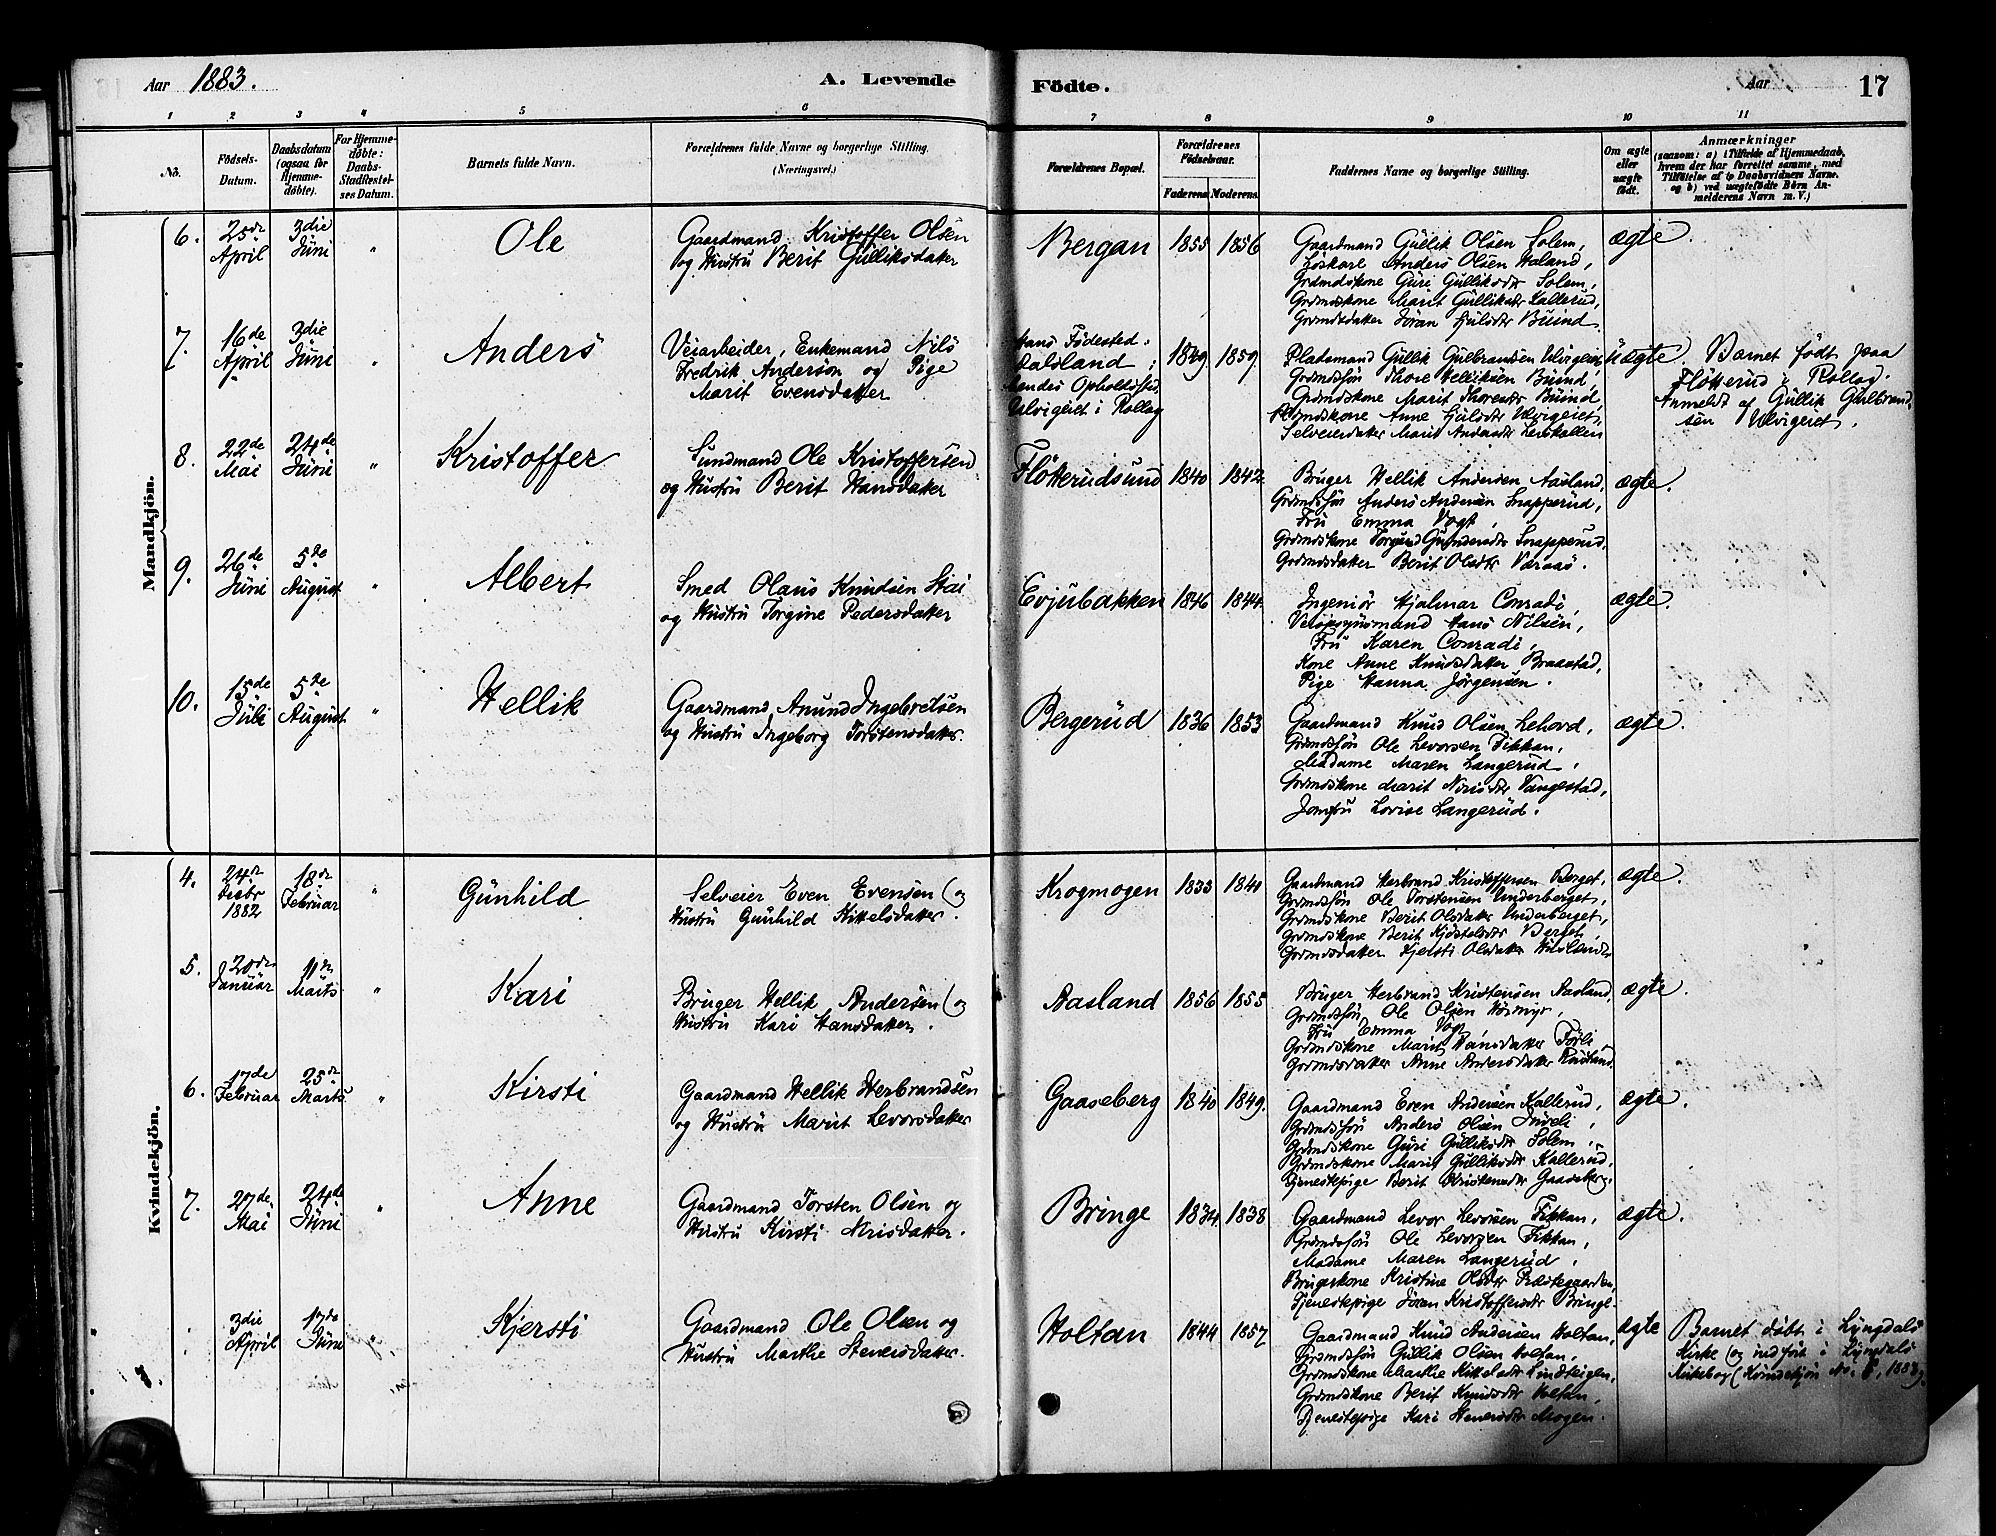 Aar 1883. A. Levende Födte. Aar 17
1 2 3 4 5 6 7 8 9 10 11
No. Födsels-Datum. Daabsdatum (ogsaa for Hjemmedøbte). For Hjemmedøbte: Daabs-Stadfæstelses Datum. Barnets fulde Navn. Forældrenes fulde Navne og borgerlige Stilling. (Næringsvei.) Forældrenes Bopæl. Forældrenes Födselsaar. Faderens Moderens Faddernes Navne og borgerlige Stilling. Om ægte eller uægte født. Anmærkninger
(saasom: a) i Tilfælde af Hjemmedaab, hvem der har forrettet samme, med Tilföielse af to Daabsvidners Navne, og b) ved uægtefödte Börn Anmelderens Navn m. V.)
Mandkjön.
6. 25de April 3die Juni " Ole
Gaardmand Kristoffer Olsen
og Hustru Berit Gulliksdatter
Bergan 1855 1856
Gaardmand Gullik Olsen Solem,
Löskare Anders Olsen Haland,
Grdmdskone Guri Gulliksdtr Solem,
Grdmdskone Marit Gulliksdtr Kallerud,
Grdmdsdatter Jöran Hjulsdtr Buind.
ægte.
7. 16de April 3die Juni " Anders
Veiarbeider, Enkemand Nils
Fredrik Anderson og Pige
Marit Evensdatter
Hans Födested:
Dalsland;
Hendes Opholdssted
Ulvigeiet i Rollag
1849. 1859.
Pladsmand Gullik Gulbrandsen Ulvigeiet,
Grdmdsſön Thore Helliksen Buind,
Grdmdskone Marit Thoresdtr Buind
Plmdskone Anne Hjulsdtr Ulvigeiet,
Selveierdatter Marit Andersdtr
uægte.
Barnet født paa
Fløtterud i Rollag.
Anmeldt af Gullik Gulbrand-
sen Ulvigeiet.
8. 22de Mai 24de Juni " Kristoffer
Sundmand Ole Kristoffersen
og Hustru Berit Hansdatter
Fløtterudsund 1840 1842.
Bruger Hellik Andersen Aasland,
Grdmdsſön Anders Andersen Snapperud,
Fru Emma Vogt,
Grdmdskone Torgund Gundersdtr Snapperud,
Grdmdsdatter Berit Olsdtr Varaas.
ægte.
9. 26de Juni 5te August " Albert
Smed Olaus Knudsen Stai
og Hustru Torgine Pedersdatter
Evjubakken 1846 1844.
Ingeniör Hjalmar Conradi,
Veiopsynsmand Hans Nilsen,
Fru Karen Conradi,
Kone Anne Knudsdatter Braastad,
Pige Hanna Jörgensen.
ægte.
10. 15de Juli 5te August. " Hellik
Gaardmand Anund Ingebretsen
og Hustru Ingeborg Torstensdatter.
Bergerud 1836 1853
Gaardmand Knud Olsen Lehovd,
Grdmdsſön Ole Levorsen Fikkan,
Madame Maren Langerud,
Grdmdskone Marit Nirisdtr Vangestad,
Jomfru Lovise Langerud.
ægte.
Kvindekjön.
4. 24de Decbr 1882 18de Februar " Gunhild
Selveier Even Evensen og
Hustru Gunhild Kittelsdatter.
Krogmogen 1833 1841
Gaardmand Herbrand Kristoffersen Berget,
Grdmdsſön Ole Torstensen Underberget,
Grdmdskone Berit Olsdatter Underberget,
Grdmdskone Berit Kjöstolsdtr Berget,
Grdmdsdatter Kjersti Olsdatter
ægte.
5. 20de Januar 11te Marts " Kari
Bruger Hellik Andersen og
Hustru Kari Hansdatter.
Aasland 1856 1855
Bruger Herbrand Kristensen Aasland,
Grdmdsſön Ole Olsen
Fru Emma Vogt,
Grdmdskone Marit Hansdatter Förli
Grdmdsdatter Anne Andersdatter
ægte.
6. 17de Februar 25de Marts " Kirsti
Gaardmand Hellik Herbrandsen
og Hustru Marit Levorsdatter
Gaaseberg 1840 1849.
Gaardmand Even Andersen Kallerud,
Grdmdsſön Anders Olsen
Grdmdskone Guri Gulliksdtr Solem,
Grdmdskone Marit Gulliksdtr Kallerud,
Tjenestepige Berit Kristensdtr Gaaseberg.
ægte.
7. 27de Mai 24de Juni " Anne
Gaardmand Torsten Olsen og
Hustru Kirsti Nirisdatter.
Bringe 1834 1838
Gaardmand Levor Levorsen Fikkan,
Grdmdsſön Ole Levorsen Fikkan,
Madame Maren Langerud,
Brugerkone Kristine Olsdtr Præstegaarden,
Tjenestepige Jöran Kristoffersdtr Bringe.
ægte.
3die April 17de Juni " Kjersti
Gaardmand Ole Olsen og
Hustru Marthe Stenersdatter.
Holtan 1844 1857
Gaardmand Knud Andersen Holtan,
Grdmdsſön Gullik Olsen Holtan,
Grdmdskone Marthe Kittelsdtr Lindteigen,
Grdmdskone Berit Knudsdtr Holtan,
Tjenestepige Kari Stenersdtr Mogen.
ægte
Barnet døbt i Lyngdals
Kirke og indført i Lyngdals
Kirkebog (Kvindekjön No. 8, 1883).